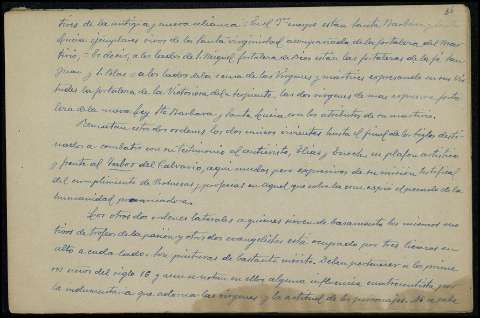 tivos de la antigua y nueva alianza: En el 3er cuerpo están Santa Bárbara y Santa
Lucía, ejemplares vivos de la santa virginidad acompañada de la fortaleza del mar-
tirio, = Es decir, a los lados de S. Miguel fortaleza de Dios están las fortalezas de la fé. San
Juan y S. Blas = a los lados de la reina de las Vírgenes y mártires expresando en sus vir-
tudes la fortaleza de la Victoriosa de la serpiente, las dos vírgenes de mas expresiva forta-
leza de la nueva ley Sta Bárbara y Santa Lucía, con los atributos de su martirio.
Rematan estos dos ordenes los dos únicos vivientes hasta el final de los siglos desti-
nados a combatir con su testimonio al anticristo, Elías y Enoch, en plafon artístico
y frente al Tabor del Calvario, aquí mudos pero expresivos de su misión testifical
del cumplimiento de Promesas y profecías en aquel que sobre la cruz espió el pecado de la
humanidad prevaricadora.
Los otros dos ordenes laterales a quienes sirven de basamento los mismos mo-
tivos de trofeos de la pasión y otros dos evangelistas está ocupado por tres lienzos en
alto a cada lado. Son pinturas de bastante mérito. Deben pertenecer a los prime-
ros años del siglo 16 y aun se notan en ellos alguna influencia cuatrocentista por
la indumentaria que adorna las vírgenes y la actitud de los personajes. No se sabe